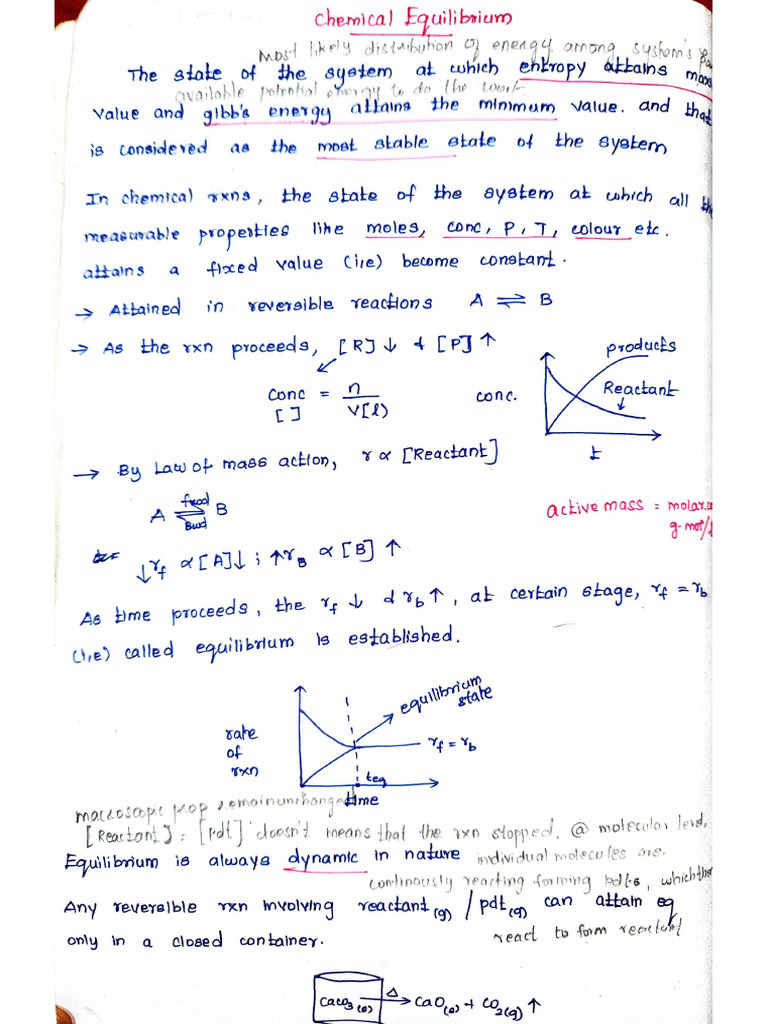 Chemical Equilibrium
Most likely distribution of energy among system's
The state of the system at which entropy attains
available potential energy to do the work
value and gibb's energy attains the minimum value. and that
is considered as the most stable state of the system
In chemical rxns, the state of the system at which all the
measurable properties like moles, conc, P, T, colour etc.
attains a fixed value (i,e) become constant.
→ Attained in reversible reactions A ⇌ B
→ As the rxn proceeds, [R]↓ & [P]↑
products
Reactant
conc.
t
Conc = n / V(l)
[ ]
→ By Law of mass action, r ∝ [Reactant]
A ⇌ B
fwd
Bwd
active mass = molar
g-mol/
↓r_f ∝ [A]↓ ; ↑r_B ∝ [B]↑
As time proceeds, the r_f ↓ & r_b ↑, at certain stage, r_f = r_b
(i,e) called equilibrium is established.
equilibrium state
rate of rxn
r_f = r_b
teq
time
macroscopic prop remain unchanged
[Reactant] = [pdt] doesn't means that the rxn stopped. @ molecular level,
Equilibrium is always dynamic in nature individual molecules are
continously reacting forming pdts, which
Any reversible rxn involving reactant(g) / pdt(g) can attain eq
only in a closed container. react to form reactant
CaCO3(s) →Δ CaO(s) + CO2(g) ↑